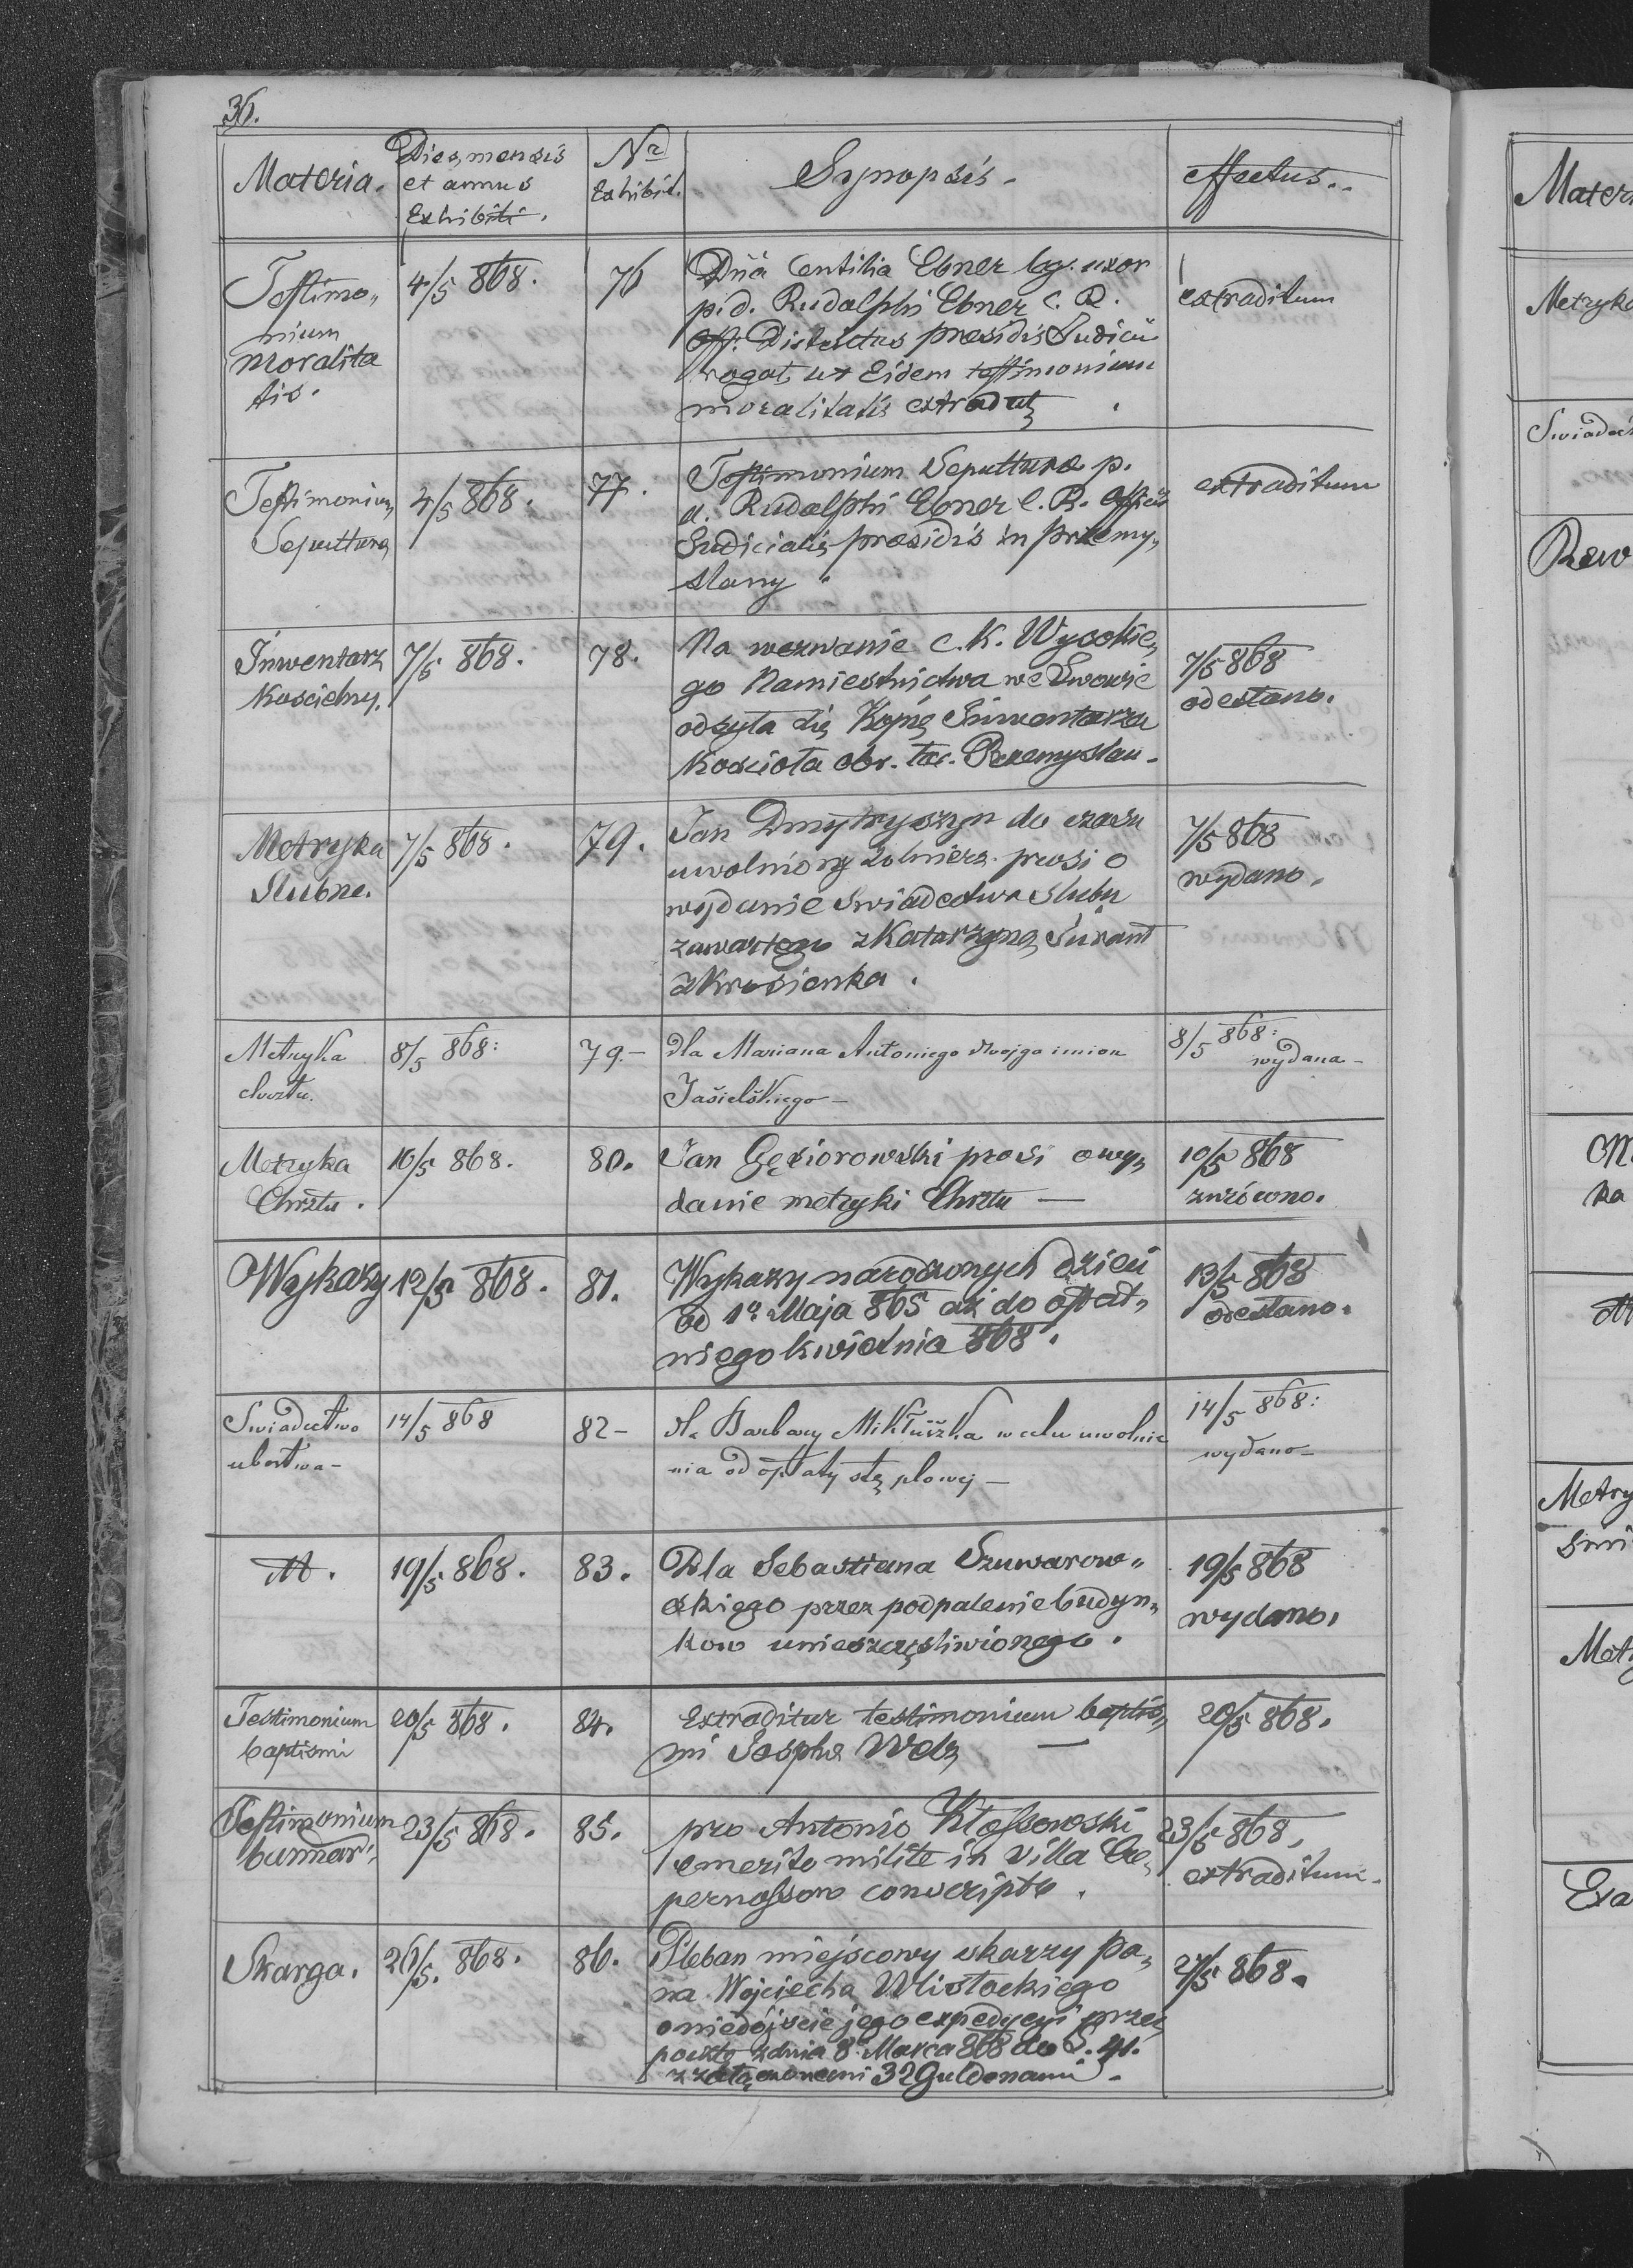 36.
Materia. Dies, mensis et annus Exhibiti. Nr Exhibit. Synopsis - effectus..
Testimo„ 4/5 868. 76 Dna Centilia Ebner leg. uxor extraditum
nium p. d. Rudolphi Ebner C. R.
moralita Off. Districtus praesidis Judicii
tis. rogat, ut Eidem testimonium
moralitatis extradat.
Testimonium 4/5 868. 77. Testimonium Sepulturae p. extraditum
Sepulturae d. Rudolphi Ebner C. R. Officii
Judicialis praesidis in Przemy„
slany.
Inwentarz 7/5 868. 78. Na wezwanie C. K. Wysokie„ 7/5 868
Kościelny. go Namiestnictwa we Lwowie odesłano.
odsyła się Kopię Inwentarza
Kościoła obr. łac. Przemyslan.
Metryka 7/5 868. 79. Jan Dmytryszyn do czasu 7/5 868
Slubne. uwolniony żołnierz prosi o wydano.
wydanie swiadectwa slubu
zawartego z Katarzyną
z Krosienka.
Metryka 8/5 868: 79.- dla Mariana Antoniego dwojga imion 8/5 868:
chrztu. Jasielskiego - wydana -
Metryka 10/5 868. 80. Jan Gęsiorowski prosi o wy„ 10/5 868
Chrztu. danie metryki Chrztu —
Wykazy 12/5 868. 81. Wykazy narodzonych dzieci 13/5 868
od 1o Maja 865 aż do ostat„ odesłano.
niego kwietnia 868.
Swiadectwo 14/5 868 82- dla Barbary w celu uwolnie 14/5 868:
ubóstwa- nia od opłaty stęplowej - wydano-
dtt. 19/5 868. 83. Dla Sebastiana Szuwarow„ 19/5 868
skiego przez podpalenie budyn„ wydano.
kow unieszczęsliwionego.
Testimonium 20/5 868. 84. Extraditur testimonium baptis„ 20/5 868.
baptismi mi Josepha Welz —
Testimonium 23/5 868. 85. pro Antonio Kłossowski 23/5 868,
emerito milite in villa Cze„ extraditum.
pernossow conscripto.
Skarga. 26/5. 868. 86. Pleban miejscowy skarzy pa„ 27/5 868.
na Wojciecha Wisłockiego
o niedójscie jego expedycyi przez
pocztę z dnia 8. Marca 868 do
32 Guldenami.
Mater
Metryka
Swiadec
Rew
ka
Metry
Metr
Exa